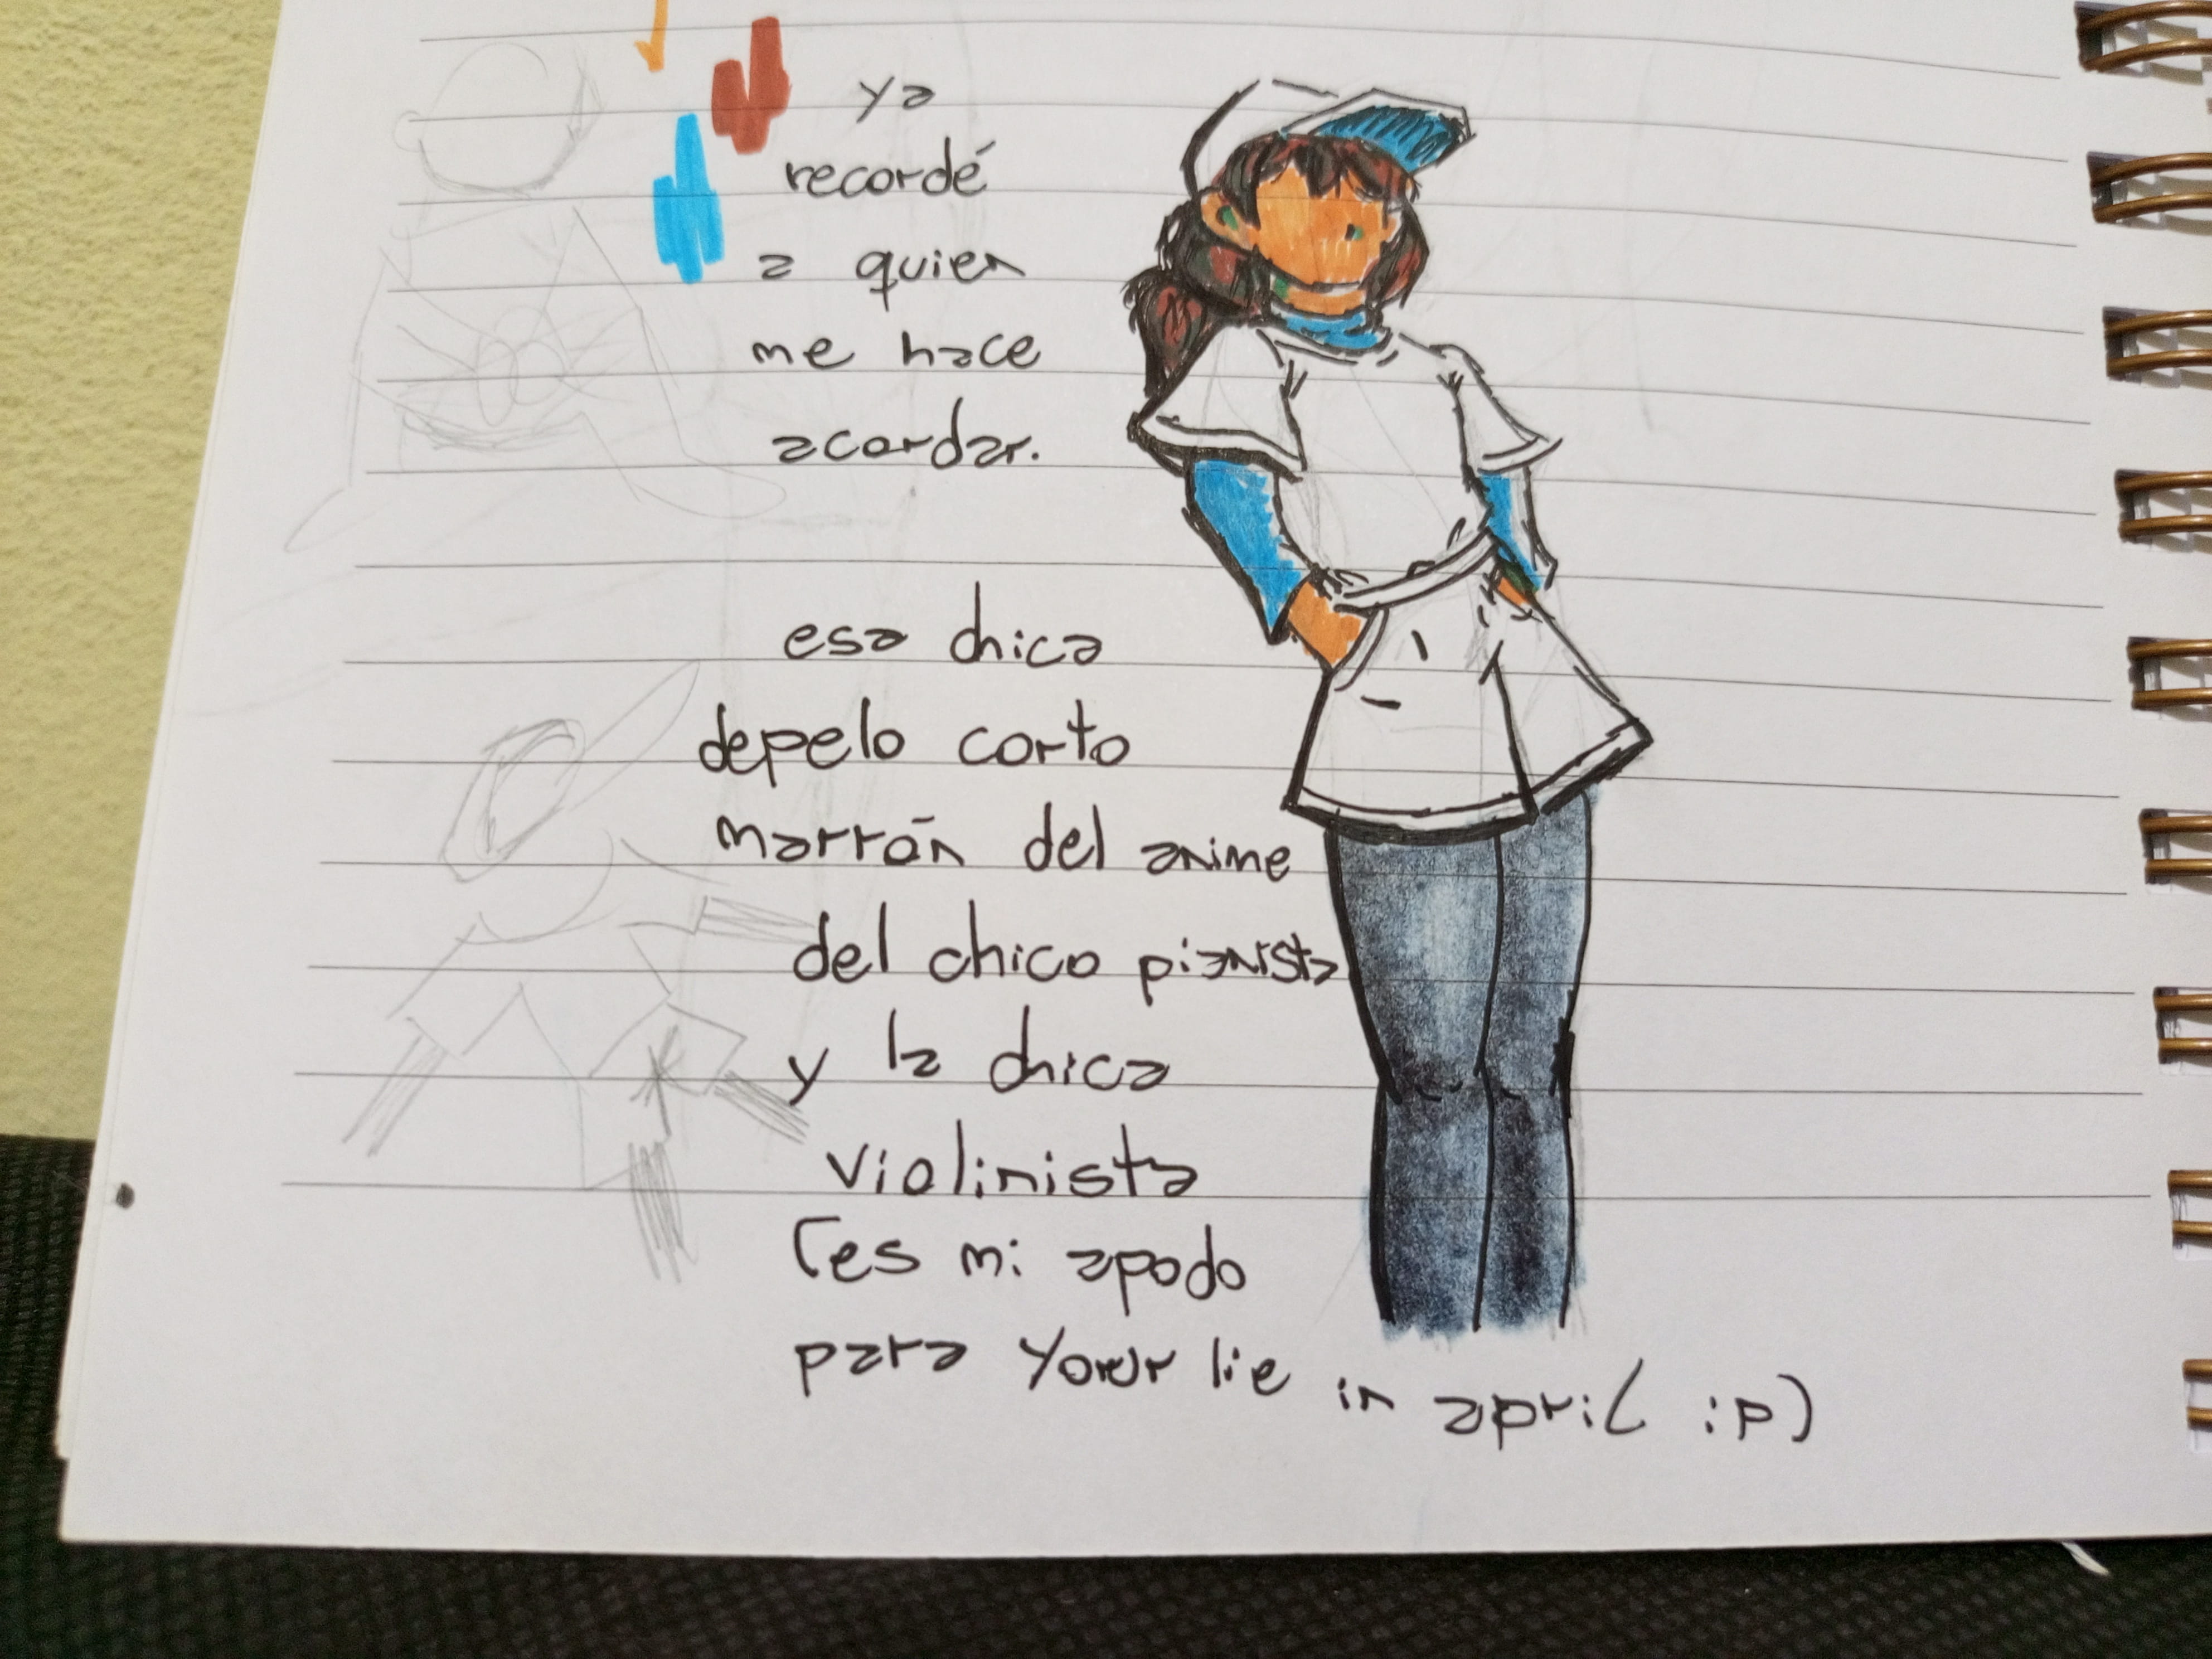 ya
recordé
a quien
me hace
acordar.
esa chica
depelo corto
marrón del anime
del chico pianista
y la chica
violinista
(es mi apodo
para your lie in april :p)